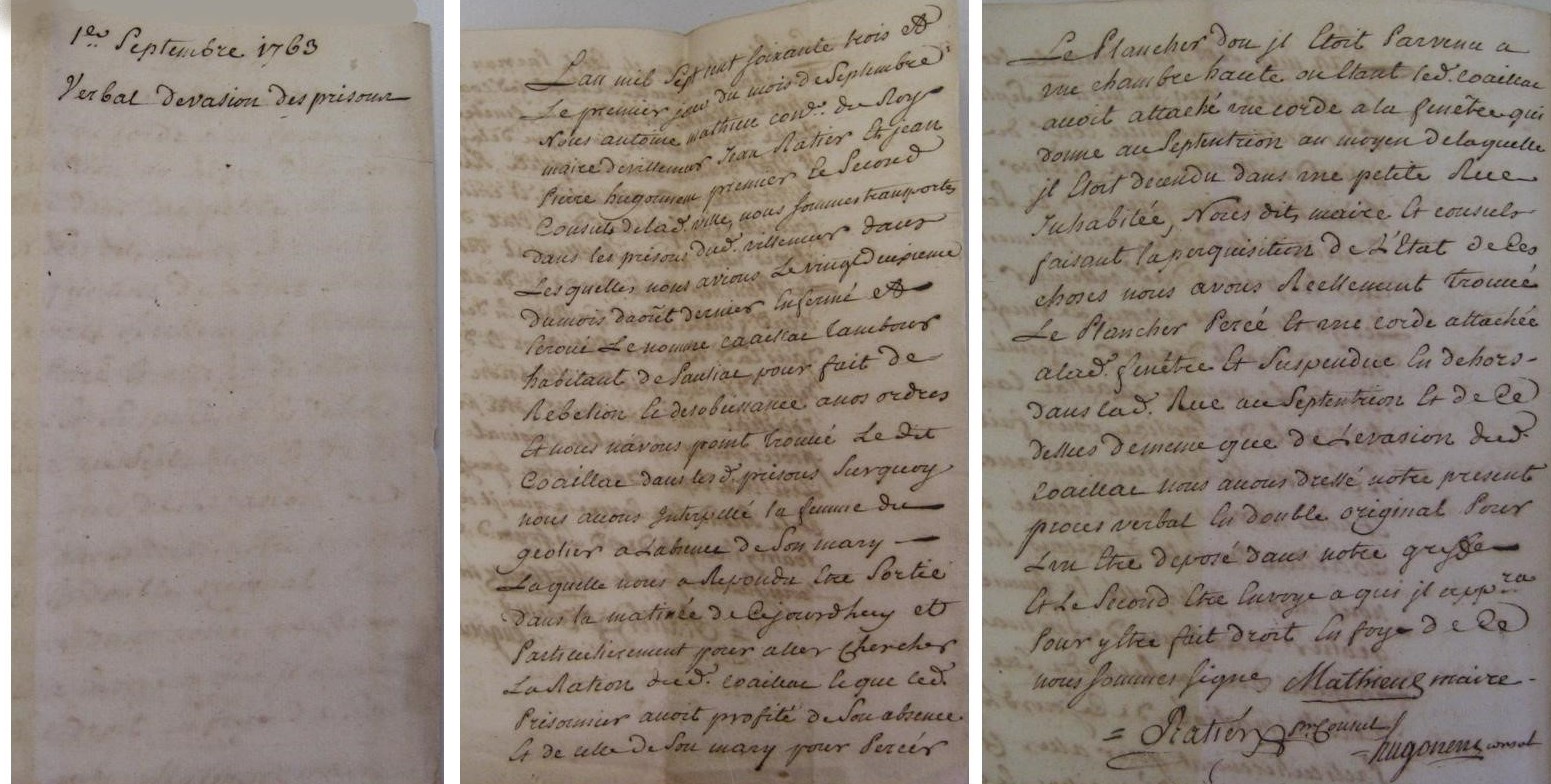 1er Septembre 1763
Verbal devasion des prisons
Lan mil Sept cent soixante trois et
Le premier jour du mois de Septembre
Nous antoine mathieu conver du Roy
maire de villemur Jean Ratier Et jean
Pierre hugonnenc premier Et Second
Consuls de lad. ville, nous sommes transportés
dans les prisons dud. villemur dans
Lesquelles nous avions Le vingt deuxieme
du mois daoût dernier Enfermé et
Ecroué Le nommé Coaillac tambour
habitant de Pauliac pour fait de
Rebelion Et desobeissance a nos ordres
Et nous navons point trouvé Le dit
Coaillac dans lesd. prisons Surquoy
nous avons Interpellé la femme du
geolier a Labsence de Son mary
Laquelle nous a Repondu Etre Sortie
dans la matinée de Cejourdhuy et
Particulierement pour aller Chercher
La Ration dud. Coaillac Et que led.
Prisonnier avoit profité de Son absence
Et de celle de Son mary pour Percér
Le Plancher dou jl Etoit Parvenu a
une chambre haute ou Etant led. Coaillac
avoit attaché une corde a la fenêtre qui
donne au Septentrion au moyen de laquelle
jl Etoit decendu dans une petite Rue
Inhabitée, Nous dits maire Et consuls
faisant la perquisition de L'Etat de Ces
choses nous avons Reellement trouvé
Le Plancher Percé Et une corde attachée
a lad. fenêtre Et Suspendue En dehors
dans lad. Rue au Septentrion Et de Ce
dessus de meme que de Levasion dud.
Coaillac nous avons dressé notre present
proces verbal En double original Pour
Lun Etre deposé dans notre greffe
Et Le Second Etre Envoye a qui jl appra
Pour y Etre fait droit En foy de Ce
nous Sommes Signés Mathieu maire
Ratier pr Consul hugonenc consul